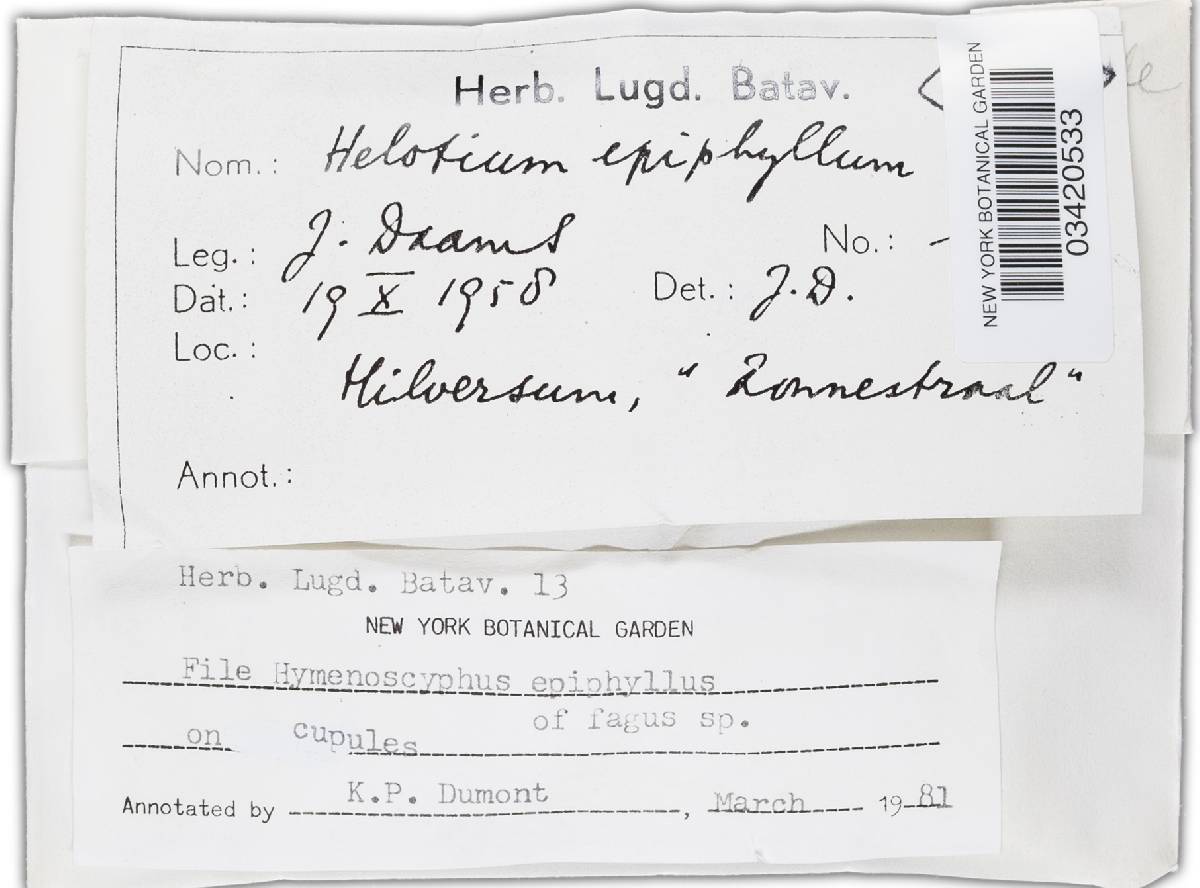 Herb. Lugd. Batav.
Nom.: Helotium epiphyllum
Leg.: J. Daams No.: -
Dat.: 19 X 1958 Det.: J.D.
Loc.:
Hilversum, "Zonnestraal"
Annot.:
NEW YORK BOTANICAL GARDEN
03420533
Herb. Lugd. Batav. 13
NEW YORK BOTANICAL GARDEN
File Hymenoscyphus epiphyllus
on cupules of fagus sp.
Annotated by K.P. Dumont, March 1981